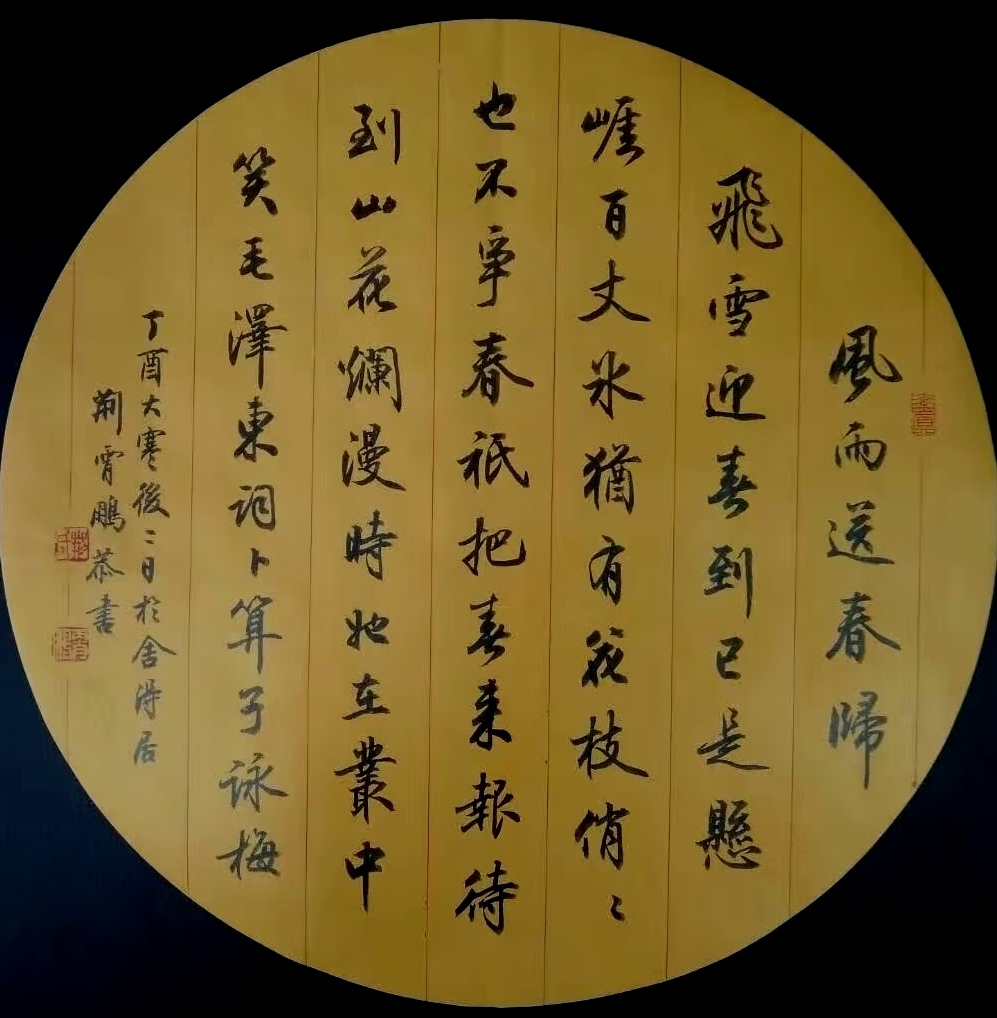 風雨送春歸
飛雪迎春到已是懸
崕百丈氷猶有花枝俏〻
也不爭春祇把春来報待
到山花爛漫時她在叢中
笑毛澤東詞卜算子詠梅
丁酉大寒後二日於舍得居
荊霄鵬恭書